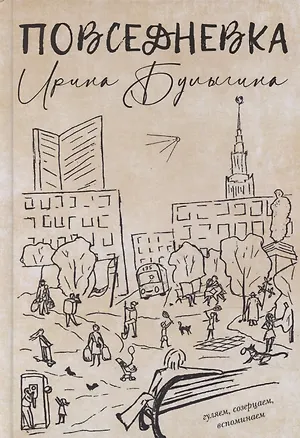 ПОВСЕДНЕВКА
Ирина Булыгина
гуляем, созерцаем,
вспоминаем